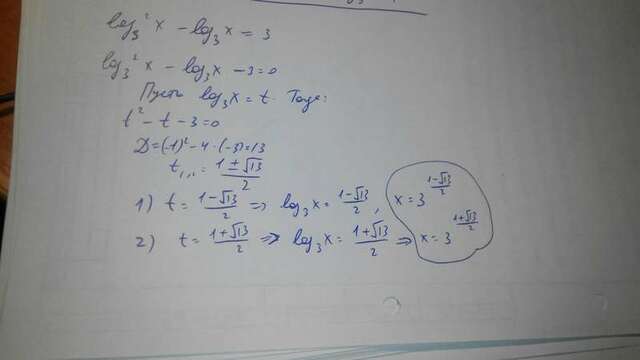 log₃²x - log₃x = 3
log₃²x - log₃x - 3 = 0
Пусть log₃x = t. Тогда:
t² - t - 3 = 0
D = (-1)² - 4·(-3) = 13
t₁,₂ = (1 ± √13)/2
1) t = (1-√13)/2 => log₃x = (1-√13)/2, x = 3^((1-√13)/2)
2) t = (1+√13)/2 => log₃x = (1+√13)/2 => x = 3^((1+√13)/2)